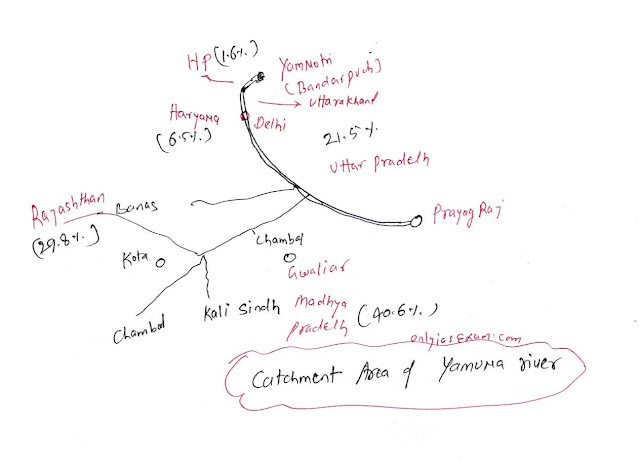 HP (1.6%)
Yamnotri
(Bandarpuch)
Uttarakhand
Haryana
(6.5%)
Delhi
21.5%
Uttar Pradesh
Rajashthan
(29.8%)
Banas
Prayag Raj
Chambal
Kota
Gwaliar
Kali Sindh
Chambal
Madhya
Pradesh
(40.6%)
onlyiasexam.com
Catchment Area of Yamuna river